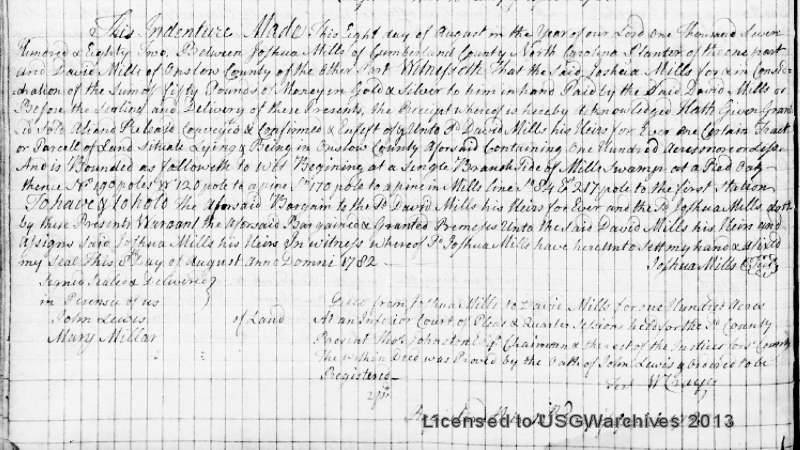 This Indenture Made This Eight day of August in the Year of our Lord one Thousand Seven
Hundred & Eighty Two, Between Joshua Mills of Cumberland County North Carolina Planter of the one part
and David Mills of Onslow County of the Other Part Witnesseth That the said Joshua Mills for & in Consid-
-eration of the Sum of fifty Pounds of Money in Gold & Silver to him in hand Paid by the Said David Mills or
Before the Sealing and Delivery of these Presents, the Receipt whereof is hereby acknowledged Hath Given Grant
d Sold Aliend Release Conveyed & Confirmed & Enfeft Unto Sd David Mills his Heirs for Ever one Certain Tract
or Parcell of Land Situate Lying & Being in Onslow County aforsaid Containing One Hundred Acres more or Less
And is Bounded as followeth to Wit Begining at a Single Branch Side of Mills Swamp at a Red Oak
thence No 190 poles Wt 120 pole to a pine So 170 pole to a pine in Mills line So 84 Et 217 pole to the first Station
To have & to hold the aforsaid Bargain to the Sd David Mills his Heirs for Ever and the Sd Joshua Mills doth
by these Presents Warrant the Aforsaid Bargained & Granted Premeses Unto the Said David Mills his Heirs and
Assigns Said Joshua Mills his Heirs In Witness whereof Sd Joshua Mills have hereunto Set my hand & Affixed
my Seal This 8th day of August Anno Domni 1782
Joshua Mills Seal
Signed Sealed & Delivered
in Presence of us
John Lewis
Mary Millar
Deed from Joshua Mills to David Mills for one Hundred Acres
of Land At an Inferior Court of Pleas & Quarter Sessions held for the Sd County
Present Thos Johnston Chairman & the rest of the Justices for Sd County
The within Deed was Proved by the Oath of John Lewis & Ordered to be
Registered
Test Wm Cray
Licensed to USGWarchives 2013